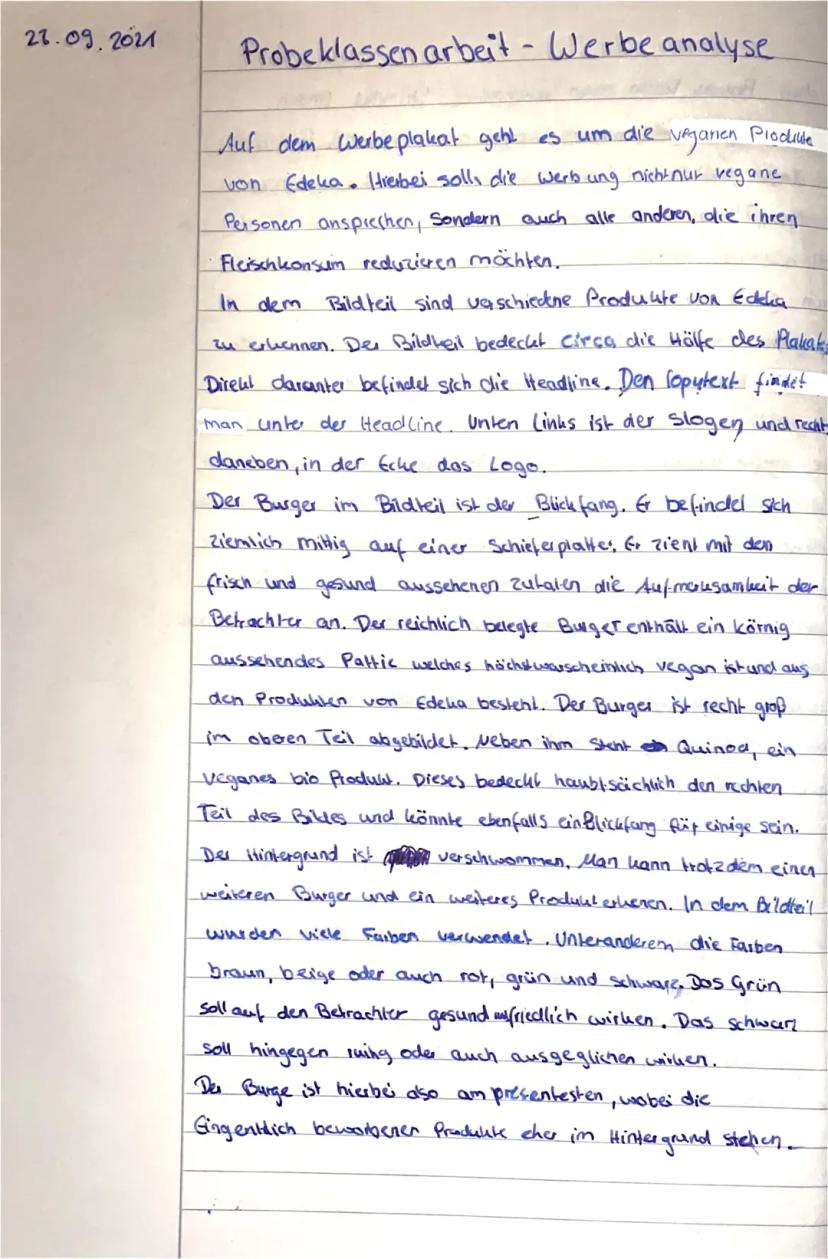 27.09.2021
Probeklassenarbeit - Werbeanalyse
Auf dem Werbeplakat geht es um die veganen Produkte
von Edeka. Hierbei soll die Werbung nicht nur vegane
Personen ansprechen, sondern auch alle anderen, die ihren
Fleischkonsum reduzieren möchten.
In dem Bildteil sind verschiedne Produkte von Edeka
zu erkennen. Der Bildteil bedeckt circa die Hälfe des Plakats
Direkt darunter befindet sich die Headline. Den Copytext findet
man unter der Headline. Unten links ist der Slogen und recht
daneben, in der Ecke das Logo.
Der Burger im Bildteil ist der Blickfang. Er befindet sich
ziemlich mittig auf einer Schieferplatte. Er zieht mit den
frisch und gesund aussehenen Zutaten die Aufmerksamkeit der
Betrachter an. Der reichlich belegte Burger enthält ein körnig
aussehendes Pattie welches höchstwarscheinlich vegan ist und aus
den Produkten von Edeka besteht. Der Burger ist recht groß
im oberen Teil abgebildet. Neben ihm steht Quinoa, ein
veganes bio Produkt. Dieses bedeckt haubtsächlich den rechten
Teil des Bildes und könnte ebenfalls ein Blickfang für einige sein.
Der Hintergrund ist verschwommen. Man kann trotzdem einen
weiteren Burger und ein weiteres Produkt erkenen. In dem Bildteil
wurden viele Farben verwendet. Unteranderem die Farben
braun, beige oder auch rot, grün und schwarz. Das Grün
soll auf den Betrachter gesund friedlich wirken. Das schwarz
soll hingegen ruihg oder auch ausgeglichen wirken.
Der Burge ist hierbei also am presentesten, wobei die
Eingentlich beworbenen Produkte eher im Hintergrund stehen.